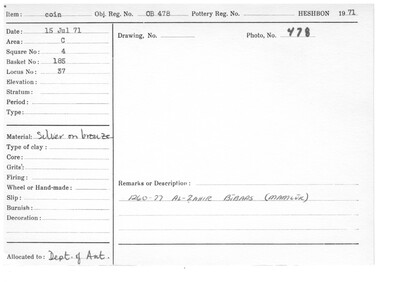 Item: coin Obj. Reg. No. OB 478 Pottery Reg. No. HESHBON 1971
Date: 15 Jul 71 Drawing, No. Photo, No. 478
Area: C
Square No: 4
Basket No: 185
Locus No: 37
Elevation:
Stratum:
Period:
Type:
Material: Silver on bronze
Type of clay:
Core:
Grits:
Firing:
Wheel or Hand-made: Remarks or Description:
Slip: 1260-77 AL-ZAHIR BIBARS (MAMLUK)
Burnish:
Decoration:
Allocated to: Dept. of Ant.